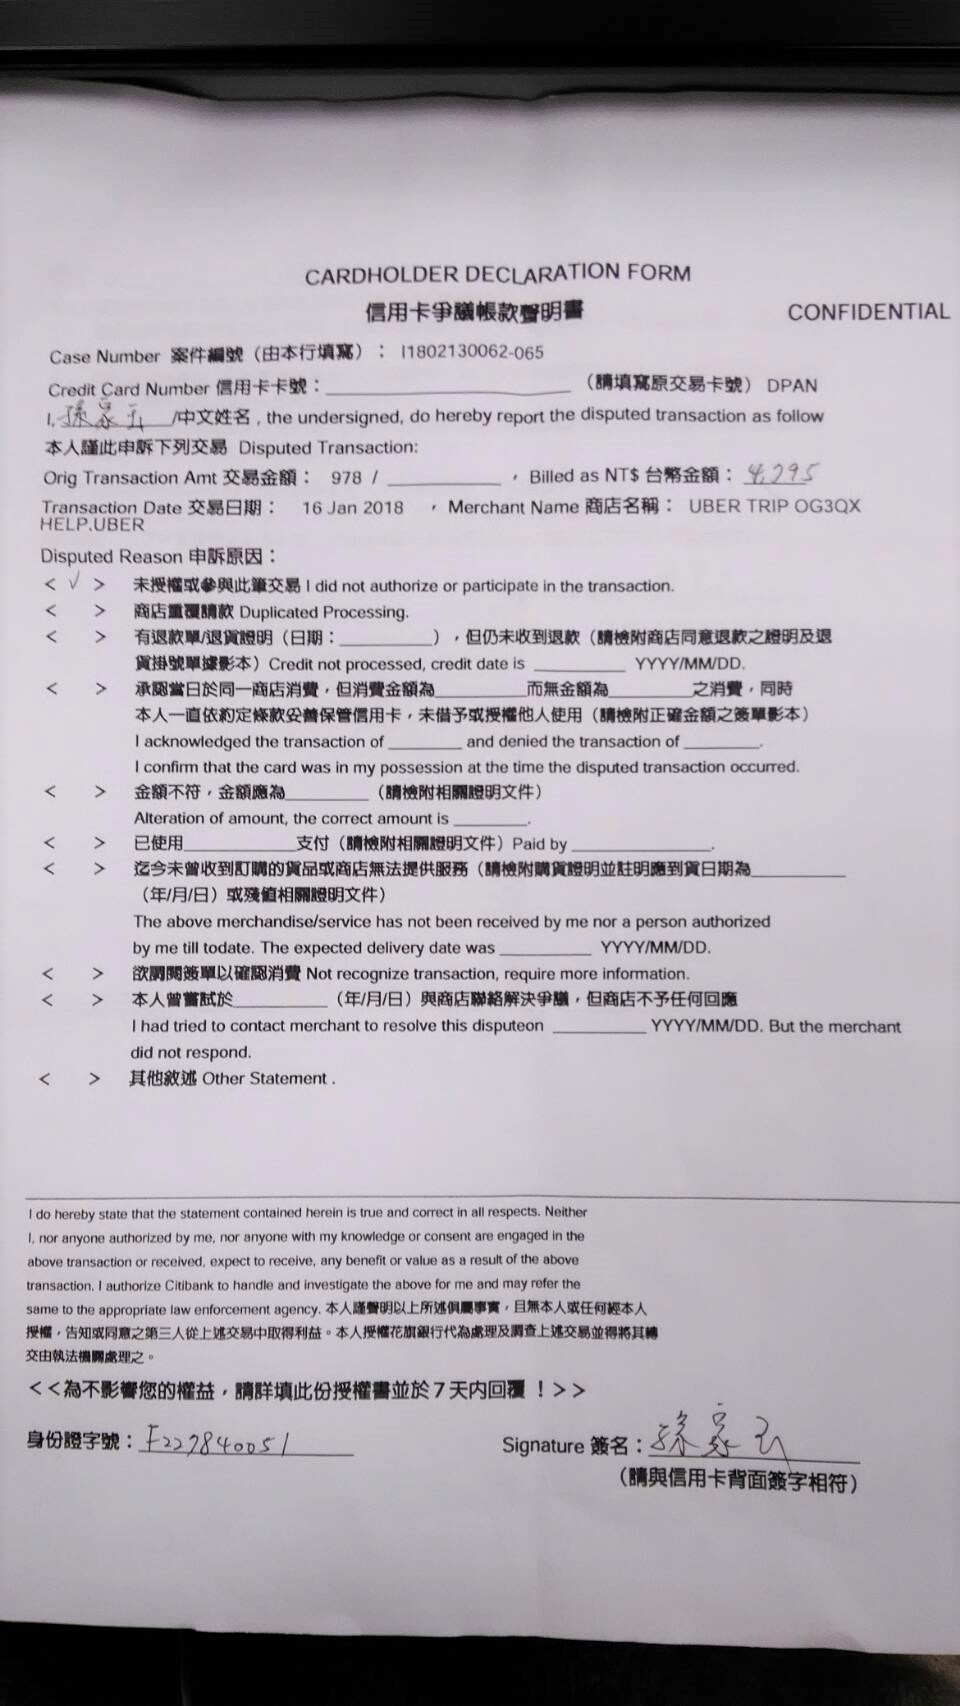 CARDHOLDER DECLARATION FORM
信用卡爭議帳款聲明書
CONFIDENTIAL
Case Number 案件編號（由本行填寫）： I1802130062-065
Credit Card Number 信用卡卡號：____________________（請填寫原交易卡號） DPAN
I, 孫家玉 /中文姓名 , the undersigned, do hereby report the disputed transaction as follow
本人謹此申訴下列交易 Disputed Transaction:
Orig Transaction Amt 交易金額： 978 / __________ ， Billed as NT$ 台幣金額： 4,295
Transaction Date 交易日期： 16 Jan 2018 ， Merchant Name 商店名稱： UBER TRIP OG3QX
HELP.UBER
Disputed Reason 申訴原因：
< √ > 未授權或參與此筆交易 I did not authorize or participate in the transaction.
< > 商店重覆請款 Duplicated Processing.
< > 有退款單/退貨證明（日期：__________），但仍未收到退款（請檢附商店同意退款之證明及退
貨掛號單據影本）Credit not processed, credit date is __________ YYYY/MM/DD.
< > 承認當日於同一商店消費，但消費金額為__________而無金額為__________之消費，同時
本人一直依約定條款妥善保管信用卡，未借予或授權他人使用（請檢附正確金額之簽單影本）
I acknowledged the transaction of ________ and denied the transaction of ________.
I confirm that the card was in my possession at the time the disputed transaction occurred.
< > 金額不符，金額應為_________（請檢附相關證明文件）
Alteration of amount, the correct amount is ________.
< > 已使用____________支付（請檢附相關證明文件）Paid by _______________.
< > 迄今未曾收到訂購的貨品或商店無法提供服務（請檢附購貨證明並註明應到貨日期為__________
（年/月/日）或殘值相關證明文件）
The above merchandise/service has not been received by me nor a person authorized
by me till todate. The expected delivery date was __________ YYYY/MM/DD.
< > 欲調閱簽單以確認消費 Not recognize transaction, require more information.
< > 本人曾嘗試於__________（年/月/日）與商店聯絡解決爭議，但商店不予任何回應
I had tried to contact merchant to resolve this disputeon __________ YYYY/MM/DD. But the merchant
did not respond.
< > 其他敘述 Other Statement .
I do hereby state that the statement contained herein is true and correct in all respects. Neither
I, nor anyone authorized by me, nor anyone with my knowledge or consent are engaged in the
above transaction or received, expect to receive, any benefit or value as a result of the above
transaction. I authorize Citibank to handle and investigate the above for me and may refer the
same to the appropriate law enforcement agency. 本人謹聲明以上所述俱屬事實，且無本人或任何經本人
授權，告知或同意之第三人從上述交易中取得利益。本人授權花旗銀行代為處理及調查上述交易並得將其轉
交由執法機關處理之。
<<為不影響您的權益，請詳填此份授權書並於7天內回覆！>>
身份證字號：F227840051
Signature 簽名：孫家玉
（請與信用卡背面簽字相符）